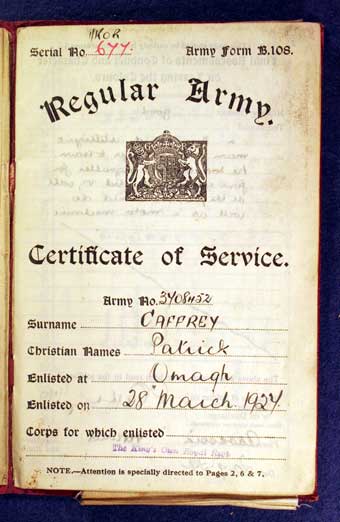 KOR
Serial No. 677. Army Form B.108.
Regular Army.
Certificate of Service.
Army No. 3708452
Surname CAFFREY
Christian Names Patrick
Enlisted at Omagh
Enlisted on 28 March 1927
Corps for which enlisted
The King's Own Royal Regt
NOTE.—Attention is specially directed to Pages 2, 6 & 7.